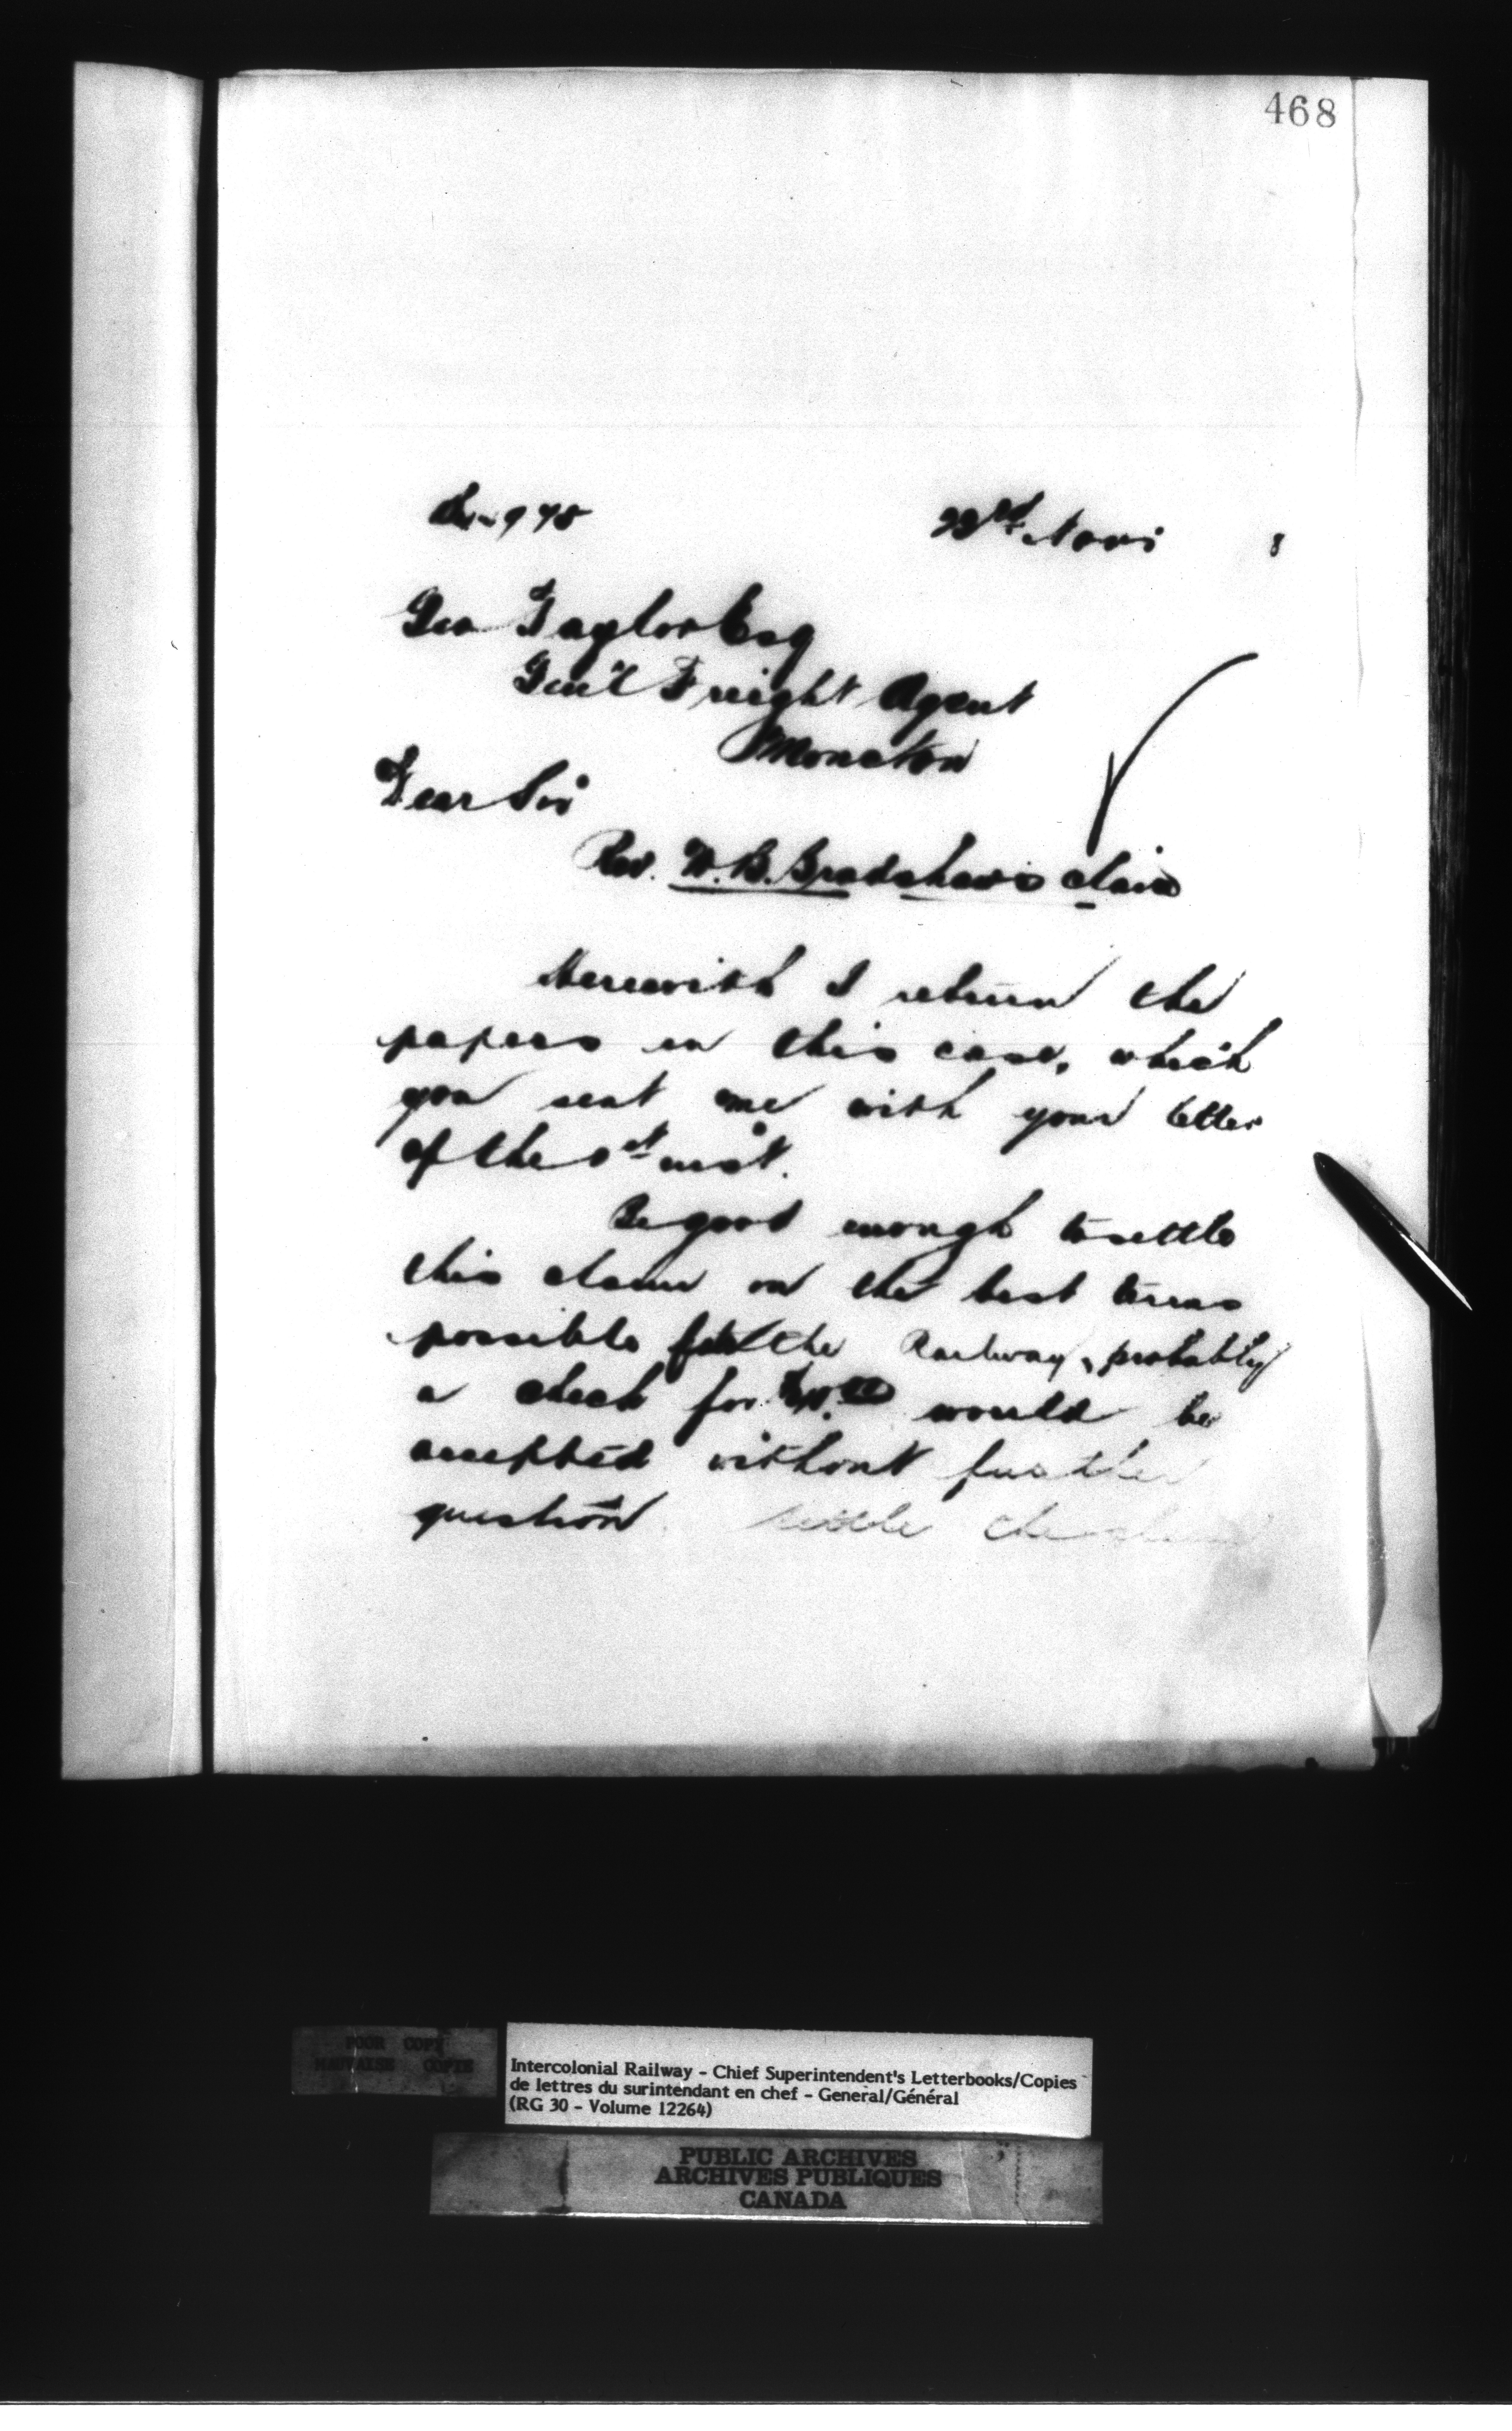 468
978
Nov.
8
Geo Taylor Esq
Gen'l Freight Agent
Moncton
Dear Sir
Rev. W. B. Bradshaw's claim
Herewith I return the
papers in this case, which
you sent me with your letter
of the 1st inst.
Be good enough to settle
this claim on the best terms
possible for the Railway, probably
a check for would be
accepted without further
question settle the claim
POOR COPY
MAUVAISE COPIE
Intercolonial Railway - Chief Superintendent's Letterbooks/Copies
de lettres du surintendant en chef - General/Général
(RG 30 - Volume 12264)
PUBLIC ARCHIVES
ARCHIVES PUBLIQUES
CANADA